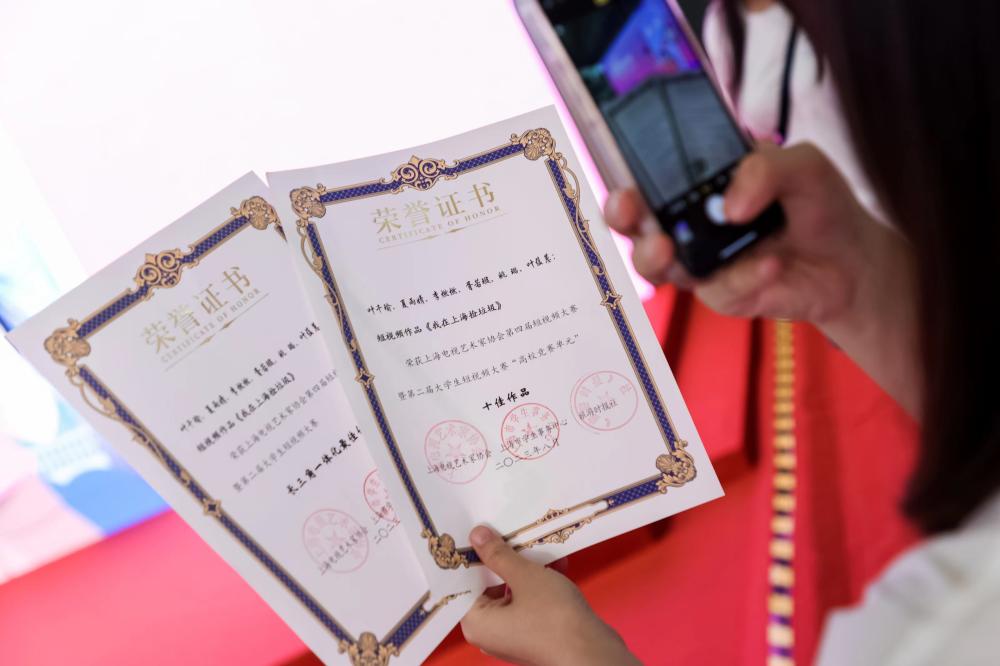 荣誉证书
CERTIFICATE OF HONOR
短视频作品《我在上海捡垃圾》
荣获上海电视艺术家协会第四届短视频大赛
暨第二届大学生短视频大赛“高校竞赛单元”
十佳作品
上海电视艺术家协会 上海市学生事务中心 旅游时报社
二〇二三年八月
荣誉证书
CERTIFICATE OF HONOR
短视频作品《我在上海捡垃圾》
荣获上海电视艺术家协会第四届短视频
暨第二届大学生短视频大赛
长三角一体化最佳
上海电视艺术家协会
二〇二